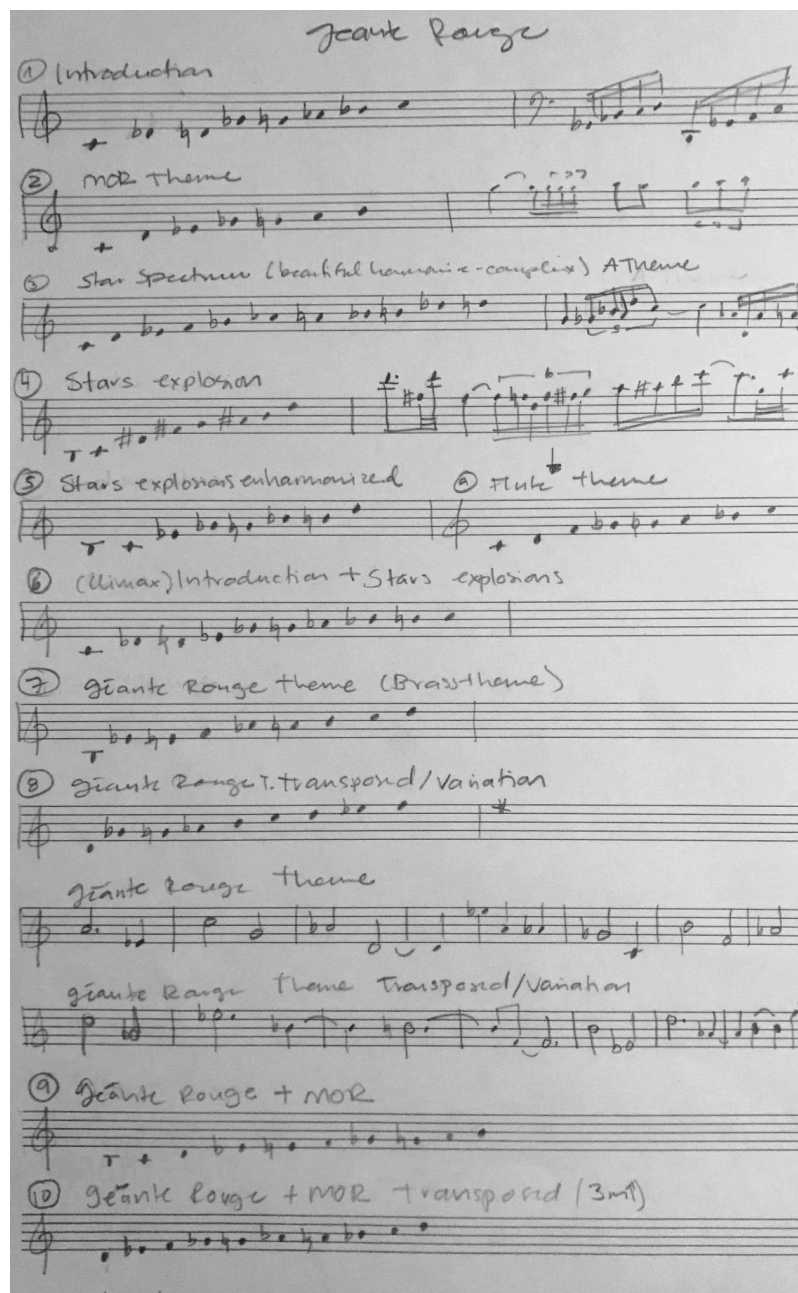 Geante Rouge
① Introduction
② MOR Theme
③ Star Spectrum (beautiful harmonie-complex) A Theme
④ Stars explosion
⑤ Stars explosions enharmonized ⓐ Flute theme
⑥ (Climax) Introduction + Stars explosions
⑦ géante Rouge theme (Brass theme)
⑧ géante Rouge T. transposed/Variation
géante Rouge theme
géante Rouge theme Transposed/Variation
⑨ Géante Rouge + MOR
⑩ géante Rouge + MOR transposed (3m↑)